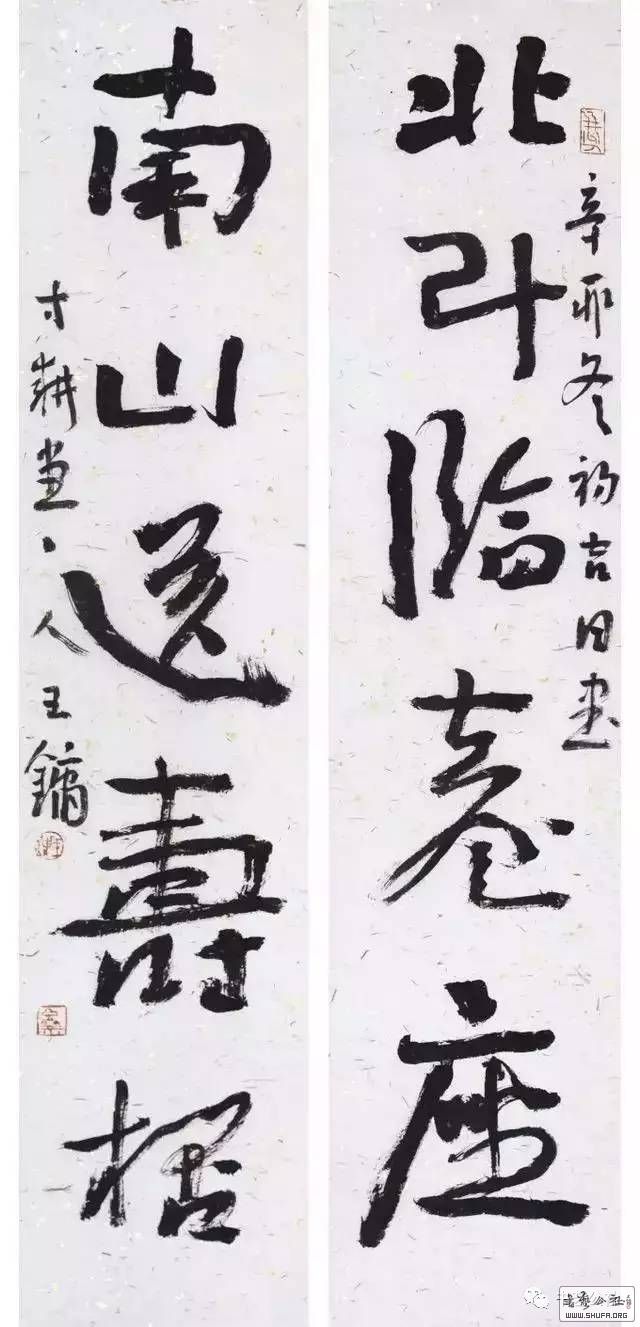 北斗臨臺座
辛卯冬初吉日書
南山送壽桮
寸耕堂丶人王鏞
書藝公社
WWW.SHUFA.ORG